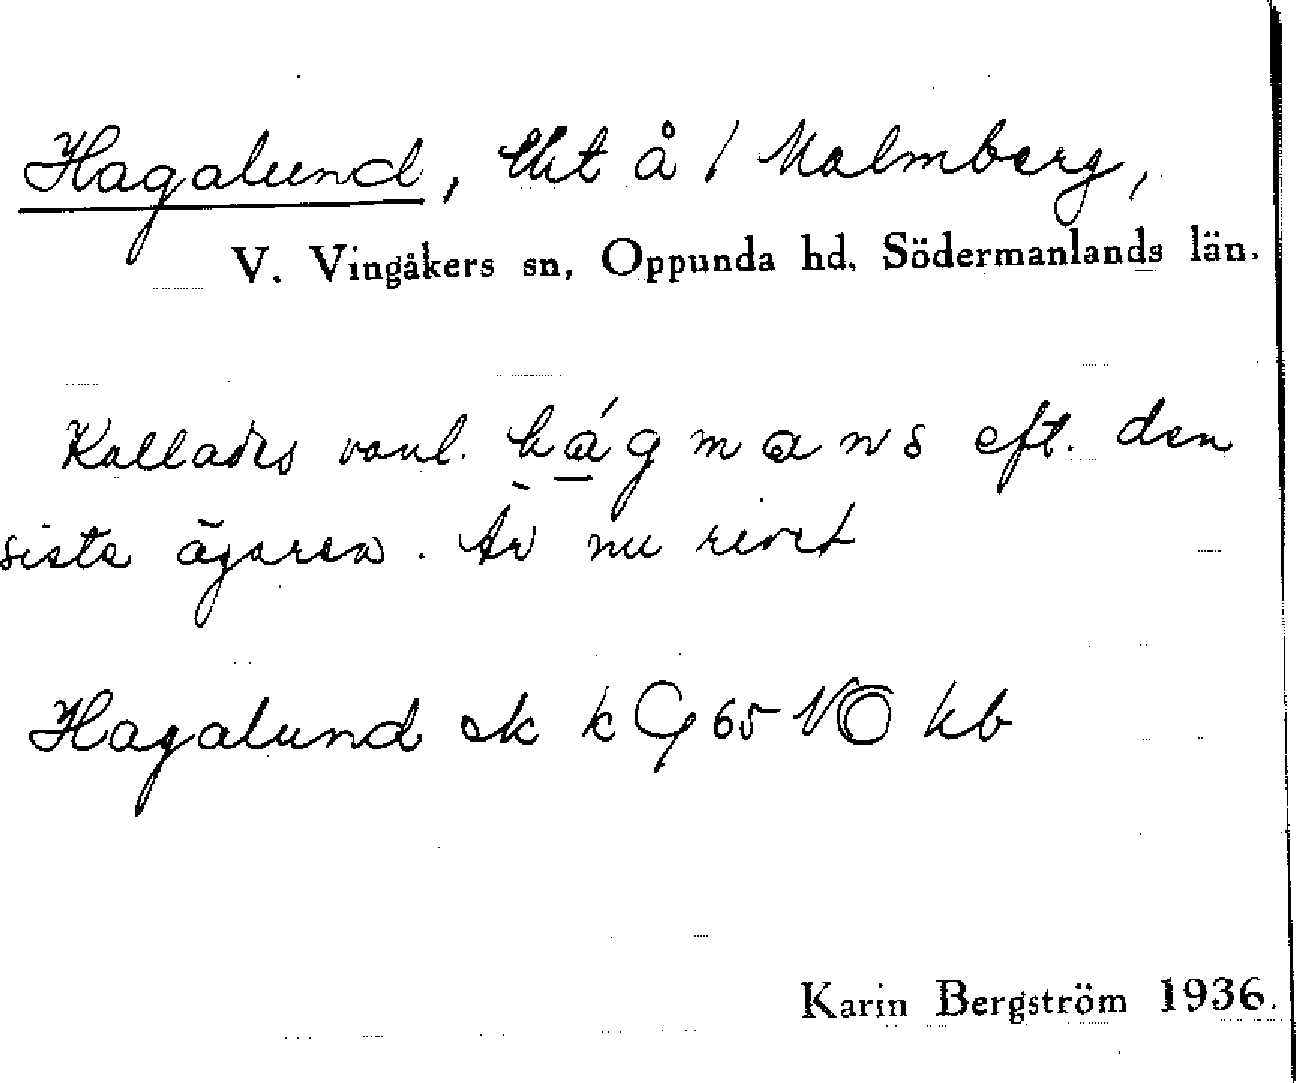 Hagalund, lht å / Malmberg,
V. Vingåkers sn, Oppunda hd, Södermanlands län.
Kallades vanl. hágmans eft. den
sista ägaren. Är nu rivet
Hagalund ek k G 65 NO kb
Karin Bergström 1936.